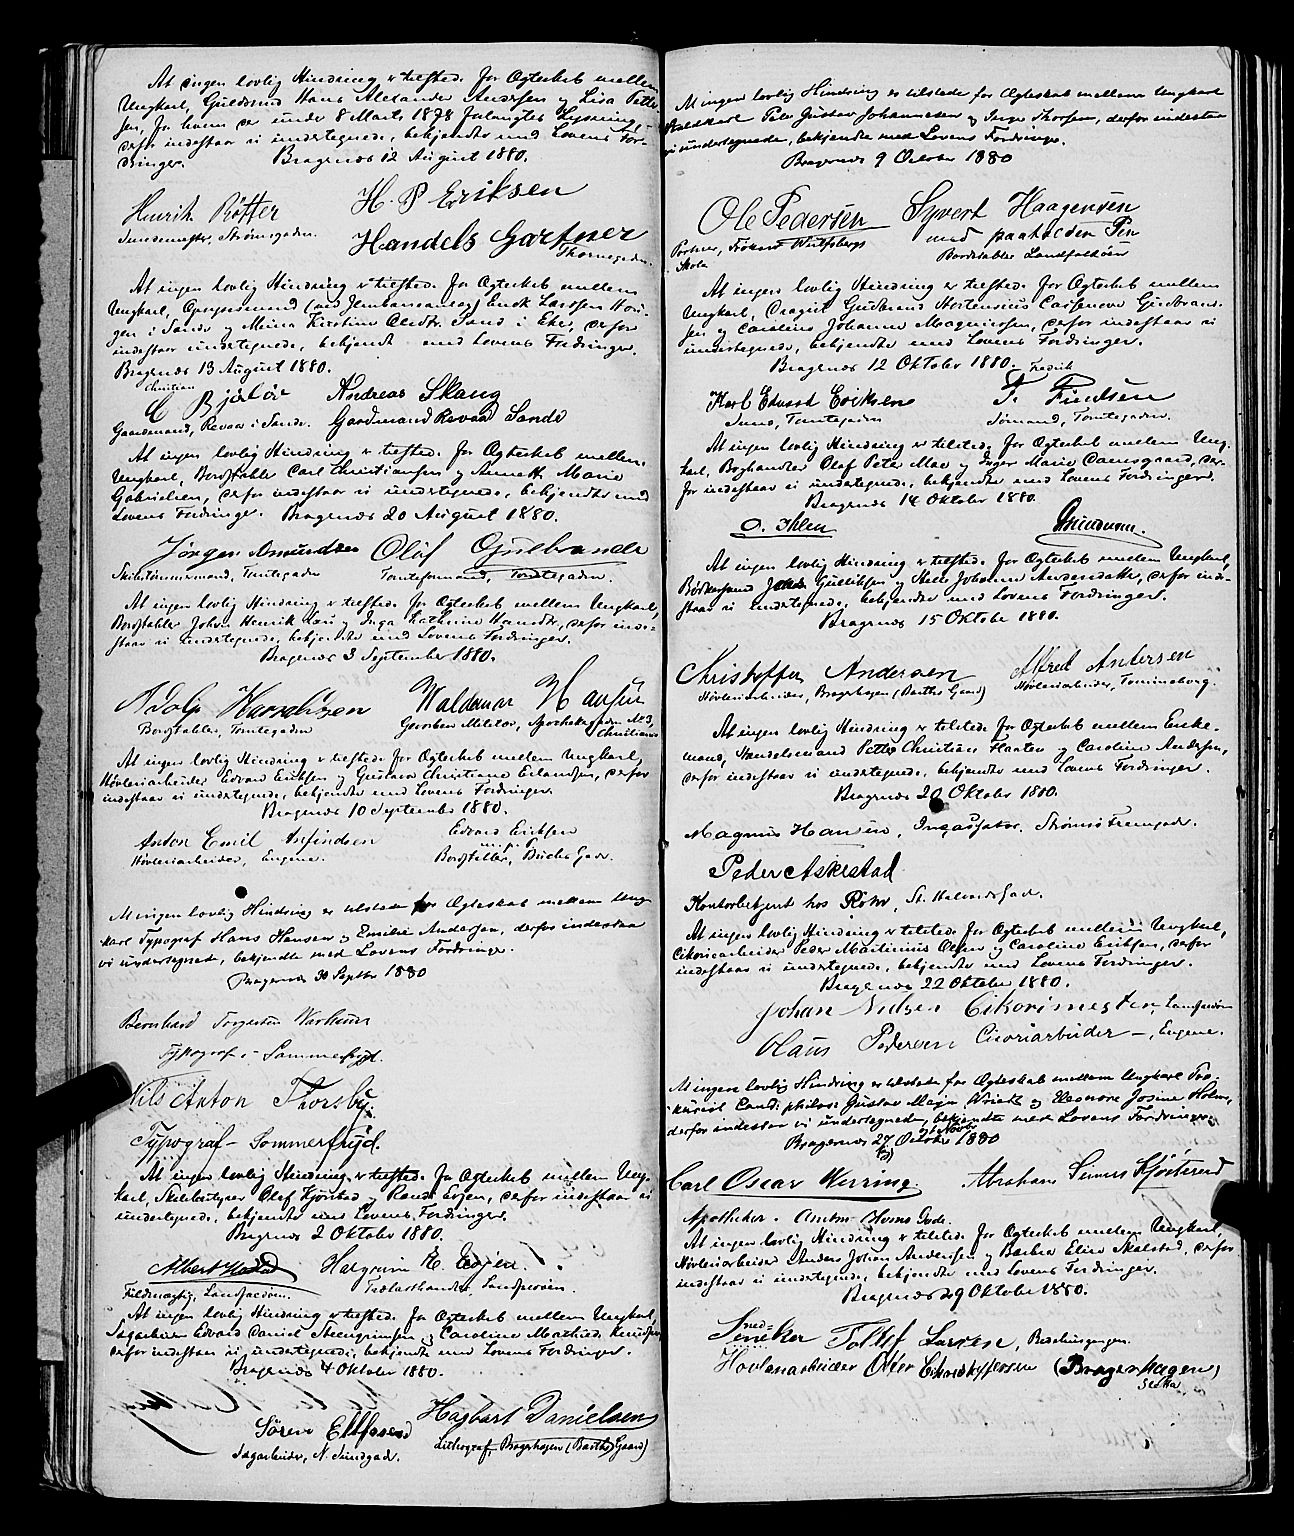 At ingen lovlig Hindring er tilstede for Ægteskab mellem
Ungkarl, Guldsmd Hans Alexander Andersen og Lisa Petter-
sen, for hvem der under 8 Marts 1878 forlangtes Lysning,
derfor indestaar vi undertegnede, bekjendte med Lovens For-
dringer. Bragernes 12 August 1880.
Henrik Røtter H. P Eriksen
Strømsgaden. Handels Gartner
Thornegaden.
At ingen lovlig Hindring er tilstede for Ægteskab mellem
Ungkarl, Gaardmand
i Sande og Mina Kirstine Olsdtr. Sand i Eker, derfor
indestaar undertegnede, bekjendte med Lovens Fordringer.
Bragernes 13 August 1880.
Christian
C Bjerkøe Andreas Skaug
Gaardmand, Revaa i Sande. Gaardmand Revaa Sande
At ingen lovlig Hindring er tilstede for Ægteskab mellem
Ungkarl, Bordstabler Carl Christiansen og Annette Marie
Gabrielsen, derfor indestaar vi undertegnede, bekjendte med
Lovens Fordringer. Bragernes 20 August 1880.
Jørgen Amundsen Olof Gudbrande
Skibstømmermand, Tomtegaden Tomteformand, Tomtegaden.
At ingen lovlig Hindring er tilstede for Ægteskab mellem Ungkarl,
Bordstabler Johan Henrik og Inga Kathrine Hansdtr, derfor inde-
staar vi undertegnede, bekjendte med Lovens Fordringer.
Bragernes 3 September 1880.
Adolf Waldemar Hansen
Bordstabler, Tomtegaden Garnison Militær, Apothekergaden No 3,
Christiania
At ingen lovlig Hindring er tilstede for Ægteskab mellem Ungkarl,
Høvleriarbeider Edvard Eriksen og Gustava Christiane Erlandsen, derfor
indestaar vi undertegnede, bekjendte med Lovens Fordringer.
Bragernes 10 September 1880.
Anton Emil Edvard Eriksen
m. p. P.
Høvleriarbeider, Eugene. Bordstabler, Buchs Gade.
At ingen lovlig Hindring er tilstede for Ægteskab mellem Ung-
karl Typograf Hans Hansen og Emilie Andersen, derfor indestaa
vi undertegnede, bekjendte med Lovens Fordringer
Bragernes 30 Septbr 1880
Bernhard Torgersen
Typograf - Sommerfryd.
Nils Anton Thorsby.
Typograf - Sommerfryd.
At ingen lovlig Hindring er tilstede for Ægteskab mellem Ung-
karl, Skibsstyrer Olaf Kjørstad og Randi Evjen, derfor indestaar vi
undertegnede, bekjendte med Lovens Fordringer.
Bragernes 2 Oktober 1880.
Albert Halgrim E. Evjen.
Fuldmægtig, Landfaldøen. Trælasthandler, Landfaldøen.
At ingen lovlig Hindring er tilstede for Ægteskab mellem Ungkarl,
Sagarbeider Edvard Daniel Steengrimsen og Caroline Mathea Knudsen,
derfor indestaar vi undertegnede, bekjendte med Lovens Fordringer.
Bragernes 4 Oktober 1880.
Søren Ellefsen Hagbart Danielsen
Sagarbeider, N. Sundgade. Lithograf, Bragerhagen (Barths Gaard)
At ingen lovlig Hindring er tilstede for Ægteskab mellem Ungkarl
Peter Gustav Johannesen og Inga Thorsen, derfor indestaa
vi undertegnede, bekjendte med Lovens Fordringer.
Bragernes 9 October 1880
Ole Pedersen Syvert Haagensen
med paaholden Pen
Portner, Frøkens Wulfsbergs Bordstabler Landfaldøen
Skole
At ingen lovlig Hindring er tilstede for Ægteskab mellem
Ungkarl, Dragist Gudbrand Hortensius Casjanove Gudbrand-
sen og Caroline Johanne Magnussen, derfor indestaar vi
undertegnede, bekjendte med Lovens Fordringer.
Bragernes 12 Oktober 1880.
Fredrik
Karl Edvard Eriksen F. Fredsen
Smed, Tomtegaden Sømand, Tomtegaden.
At ingen lovlig Hindring er tilstede for Ægteskab mellem Ung-
karl, Boghandler Olaf Peter Moe og Inger Marie Damsgaard, der-
for indestaar vi undertegnede, bekjendte med Lovens Fordringer.
Bragernes 14 Oktober 1880.
O. Ihlen
At ingen lovlig Hindring er tilstede for Ægteskab mellem Ungkarl,
Bødkersvend Gulliksen og Johanne Andersdatter, derfor inde-
staar vi undertegnede, bekjendte med Lovens Fordringer.
Bragernes 15 Oktober 1880.
Christoffer Andersen Alfred Andersen
Høvleriarbeider, Bragerhagen (Barths Gaard) Høvleriarbeider, Tømmeraberg.
At ingen lovlig Hindring er tilstede for Ægteskab mellem Enke-
mand, Handelsmand Petter Christian Flaaten og Caroline Andersen,
derfor indestaar vi undertegnede, bekjendte med Lovens Fordringer.
Bragernes 20 Oktober 1880.
Magnus Hansen, Incassator. Strømsø Tverrgade.
Peder Askestad
Kontorbetjent hos Rohr, St. Halvards Gad.
At ingen lovlig Hindring er tilstede for Ægteskab mellem Ungkarl,
Cikoriearbeider Peder Martinius Olsen og Caroline Eriksen, derfor
indestaar vi undertegnede, bekjendte med Lovens Fordringer.
Bragernes 22 Oktober 1880.
Johan Nielsen Cikorimester, Landfaldøen
Claus Pedersen Cicoriarbeider -, Eugene.
At ingen lovlig Hindring er tilstede for Ægteskab mellem Ungkarl Pro-
kurist Cand: philos: Gustav Meyer og Eleonore Josine Holm,
derfor indestaar vi undertegnede bekjendte med Lovens Fordringer.
Bragernes 27 October 1880
Carl Oscar Werring. Abraham Severus Kjøsterud
Apotheker.
At ingen lovlig Hindring er tilstede for Ægteskab mellem Ungkarl,
Høvleriarbeider Anders Johan Andersen og Barbra Elise Skalstad, derfor
indestaar vi undertegnede, bekjendte med Lovens Fordringer.
Bragernes 29 Oktober 1880.
Smed-
Snedker Tollef Larsen, Bødkerengen.
Høvlariarbeider Otter Christoffersen (Bragerhagen)